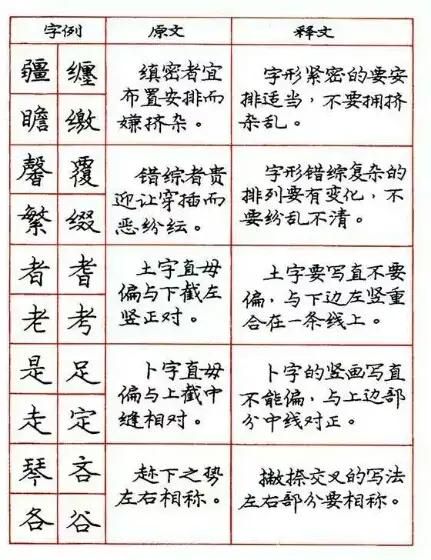 字例 原文 释文
疆 缠
瞻 缴
缜密者宜
布置安排而
嫌挤杂。
字形紧密的要安
排适当，不要拥挤
杂乱。
馨 覆
繁 缀
错综者贵
迎让穿插而
恶纷纭。
字形错综复杂的
排列要有变化，不
要纷乱不清。
者 耆
老 考
土字直毋
偏与下截左
竖正对。
土字要写直不要
偏，与下边左竖重
合在一条线上。
是 足
走 定
卜字直毋
偏与上截中
缝相对。
卜字的竖画写直
不能偏，与上边部
分中线对正。
琴 吝
各 谷
趁下之势
左右相称。
撇捺交叉的写法
左右部分要相称。